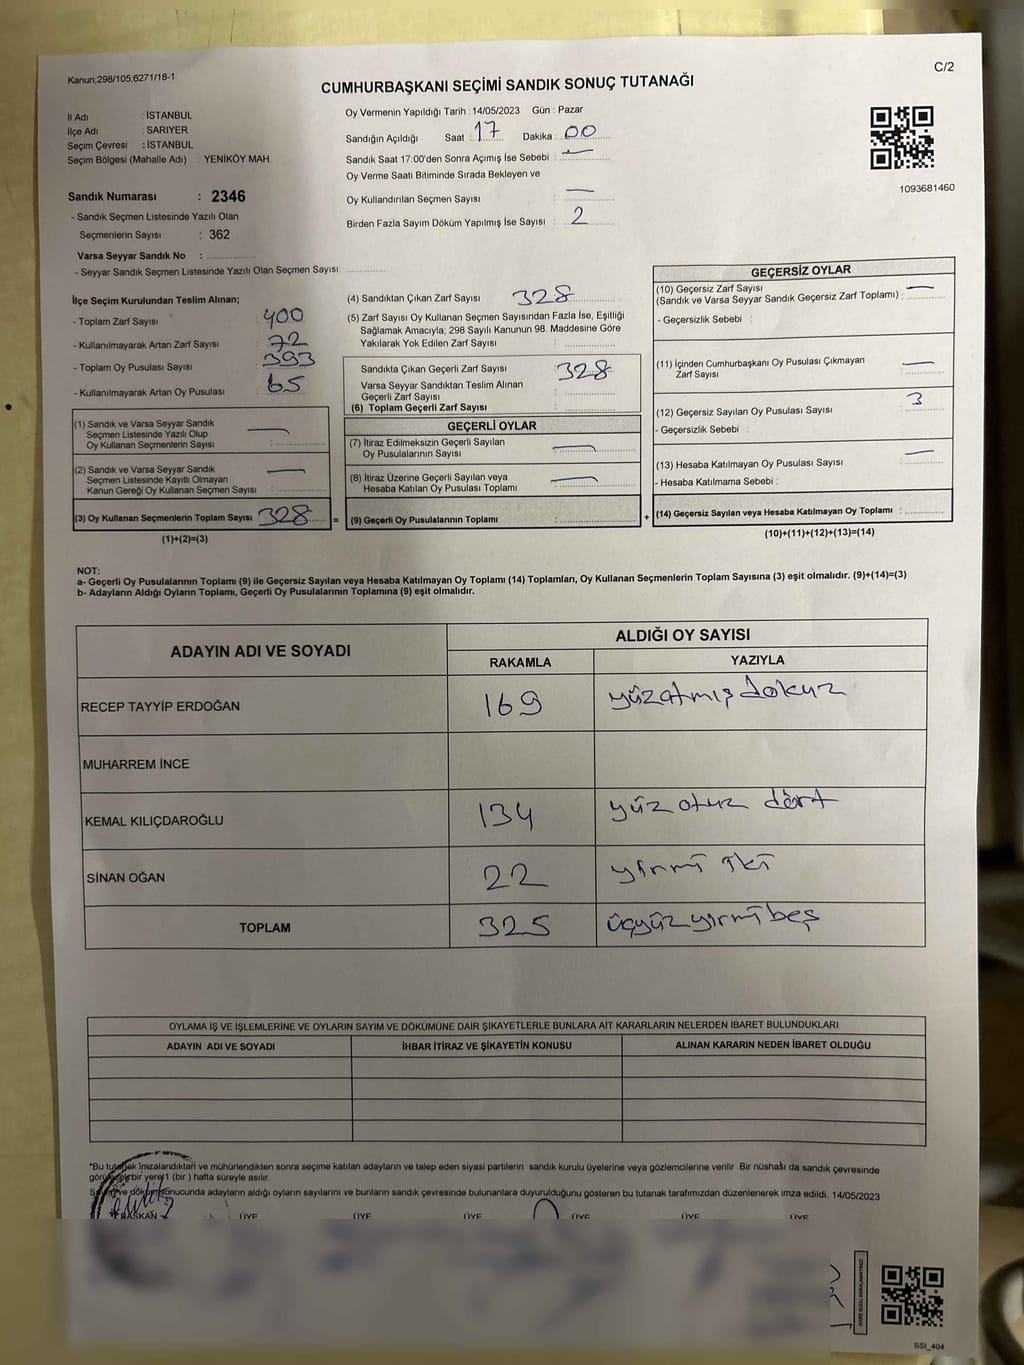 Kanun;298/105,6271/18-1
C/2
CUMHURBAŞKANI SEÇİMİ SANDIK SONUÇ TUTANAĞI
İl Adı : İSTANBUL
İlçe Adı : SARIYER
Seçim Çevresi : İSTANBUL
Seçim Bölgesi (Mahalle Adı) : YENİKÖY MAH.
Oy Vermenin Yapıldığı Tarih : 14/05/2023 Gün : Pazar
Sandığın Açıldığı Saat : 17 Dakika : 00
Sandık Saat 17:00'den Sonra Açımış İse Sebebi : —
Oy Verme Saati Bitiminde Sırada Bekleyen ve
Oy Kullandırılan Seçmen Sayısı : —
Birden Fazla Sayım Döküm Yapılmış İse Sayısı : 2
1093681460
Sandık Numarası : 2346
- Sandık Seçmen Listesinde Yazılı Olan
Seçmenlerin Sayısı : 362
Varsa Seyyar Sandık No :
- Seyyar Sandık Seçmen Listesinde Yazılı Olan Seçmen Sayısı:
İlçe Seçim Kurulundan Teslim Alınan;
- Toplam Zarf Sayısı : 400
- Kullanılmayarak Artan Zarf Sayısı : 72
- Toplam Oy Pusulası Sayısı : 393
- Kullanılmayarak Artan Oy Pusulası : 65
(1) Sandık ve Varsa Seyyar Sandık
Seçmen Listesinde Yazılı Olup
Oy Kullanan Seçmenlerin Sayısı : —
(2) Sandık ve Varsa Seyyar Sandık
Seçmen Listesinde Kayıtlı Olmayan
Kanun Gereği Oy Kullanan Seçmen Sayısı : —
(3) Oy Kullanan Seçmenlerin Toplam Sayısı 328
(1)+(2)=(3)
(4) Sandıktan Çıkan Zarf Sayısı 328
(5) Zarf Sayısı Oy Kullanan Seçmen Sayısından Fazla İse, Eşitliği
Sağlamak Amacıyla; 298 Sayılı Kanunun 98. Maddesine Göre
Yakılarak Yok Edilen Zarf Sayısı :
Sandıkta Çıkan Geçerli Zarf Sayısı : 328
Varsa Seyyar Sandıktan Teslim Alınan
Geçerli Zarf Sayısı :
(6) Toplam Geçerli Zarf Sayısı :
GEÇERLİ OYLAR
(7) İtiraz Edilmeksizin Geçerli Sayılan
Oy Pusulalarının Sayısı : —
(8) İtiraz Üzerine Geçerli Sayılan veya
Hesaba Katılan Oy Pusulası Toplamı : —
= (9) Geçerli Oy Pusulalarının Toplamı :
GEÇERSİZ OYLAR
(10) Geçersiz Zarf Sayısı
(Sandık ve Varsa Seyyar Sandık Geçersiz Zarf Toplamı) : —
- Geçersizlik Sebebi :
(11) İçinden Cumhurbaşkanı Oy Pusulası Çıkmayan
Zarf Sayısı : —
(12) Geçersiz Sayılan Oy Pusulası Sayısı : 3
- Geçersizlik Sebebi :
(13) Hesaba Katılmayan Oy Pusulası Sayısı : —
- Hesaba Katılmama Sebebi :
+ (14) Geçersiz Sayılan veya Hesaba Katılmayan Oy Toplamı :
(10)+(11)+(12)+(13)=(14)
NOT:
a- Geçerli Oy Pusulalarının Toplamı (9) ile Geçersiz Sayılan veya Hesaba Katılmayan Oy Toplamı (14) Toplamları, Oy Kullanan Seçmenlerin Toplam Sayısına (3) eşit olmalıdır. (9)+(14)=(3)
b- Adayların Aldığı Oyların Toplamı, Geçerli Oy Pusulalarının Toplamına (9) eşit olmalıdır.
ADAYIN ADI VE SOYADI
ALDIĞI OY SAYISI
RAKAMLA YAZIYLA
RECEP TAYYİP ERDOĞAN 169 yüzatmış dokuz
MUHARREM İNCE
KEMAL KILIÇDAROĞLU 134 yüz otuz dört
SİNAN OĞAN 22 yirmi iki
TOPLAM 325 üçyüzyirmi beş
OYLAMA İŞ VE İŞLEMLERİNE VE OYLARIN SAYIM VE DÖKÜMÜNE DAİR ŞİKAYETLERLE BUNLARA AİT KARARLARIN NELERDEN İBARET BULUNDUKLARI
ADAYIN ADI VE SOYADI İHBAR İTİRAZ VE ŞİKAYETİN KONUSU ALINAN KARARIN NEDEN İBARET OLDUĞU
*Bu tutanak imzalandıktan ve mühürlendikten sonra seçime katılan adayların ve talep eden siyasi partilerin sandık kurulu üyelerine veya gözlemcilerine verilir. Bir nüshası da sandık çevresinde
bir yere 1 (bir) hafta süreyle asılır.
Sayım ve döküm sonucunda adayların aldığı oyların sayılarını ve bunların sandık çevresinde bulunanlara duyurulduğunu gösteren bu tutanak tarafımızdan düzenlenerek imza edildi. 14/05/2023
BAŞKAN ÜYE ÜYE ÜYE ÜYE ÜYE ÜYE
SSI_404